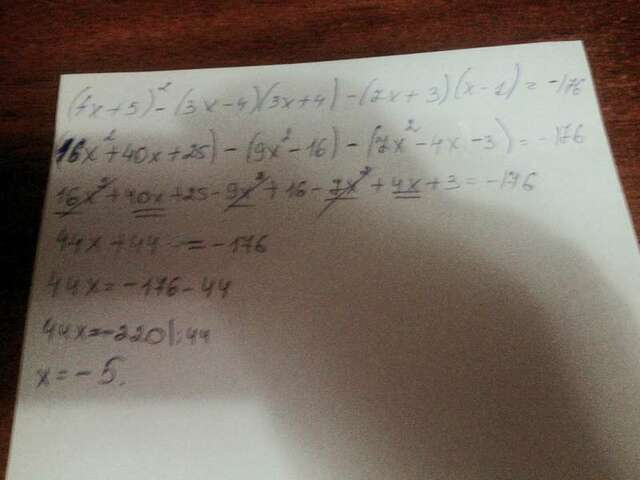 (4x+5)² - (3x-4)(3x+4) - (7x+3)(x-1) = -176
(16x²+40x+25) - (9x²-16) - (7x²-4x-3) = -176
16x²+40x+25-9x²+16-7x²+4x+3=-176
44x+44=-176
44x=-176-44
44x=-220|:44
x=-5.